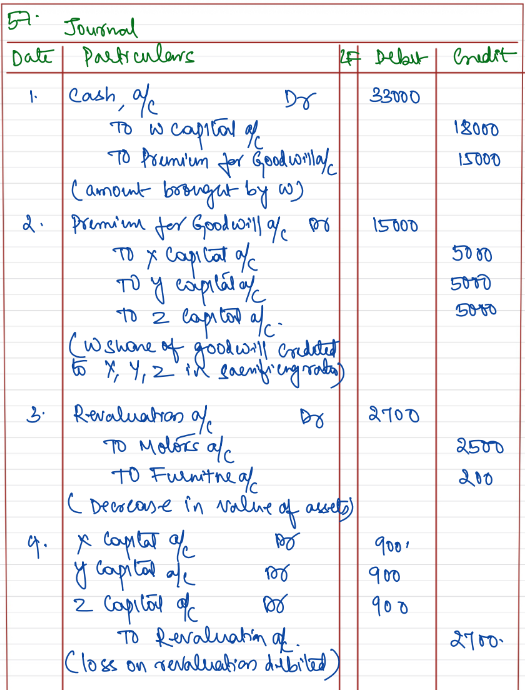 57. Journal
Date Particulars LF Debit Credit
1. Cash a/c Dr 33000
To W Capital a/c 18000
To Premium for Goodwill a/c 15000
(amount brought by W)
2. Premium for Goodwill a/c Dr 15000
To X Capital a/c 5000
To Y Capital a/c 5000
To Z Capital a/c. 5000
(W share of goodwill credited
to X, Y, Z in sacrificing ratio)
3. Revaluation a/c Dr 2700
To Motors a/c 2500
To Furnitre a/c 200
(Decrease in value of assets)
4. X Capital a/c Dr 900
Y Capital a/c Dr 900
Z Capital a/c Dr 900
To Revaluation a/c. 2700.
(loss on revaluation debited)